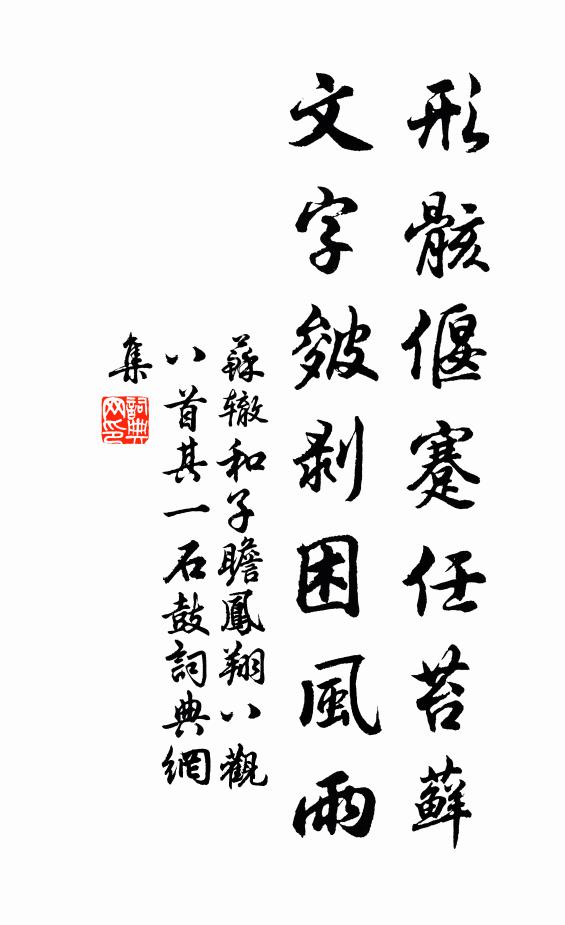 形骸偃蹇任苔蘚
文字皴剥困風雨
蘇轍和子瞻鳳翔八觀
八首其一石鼓詞典網
集
詞典
网印